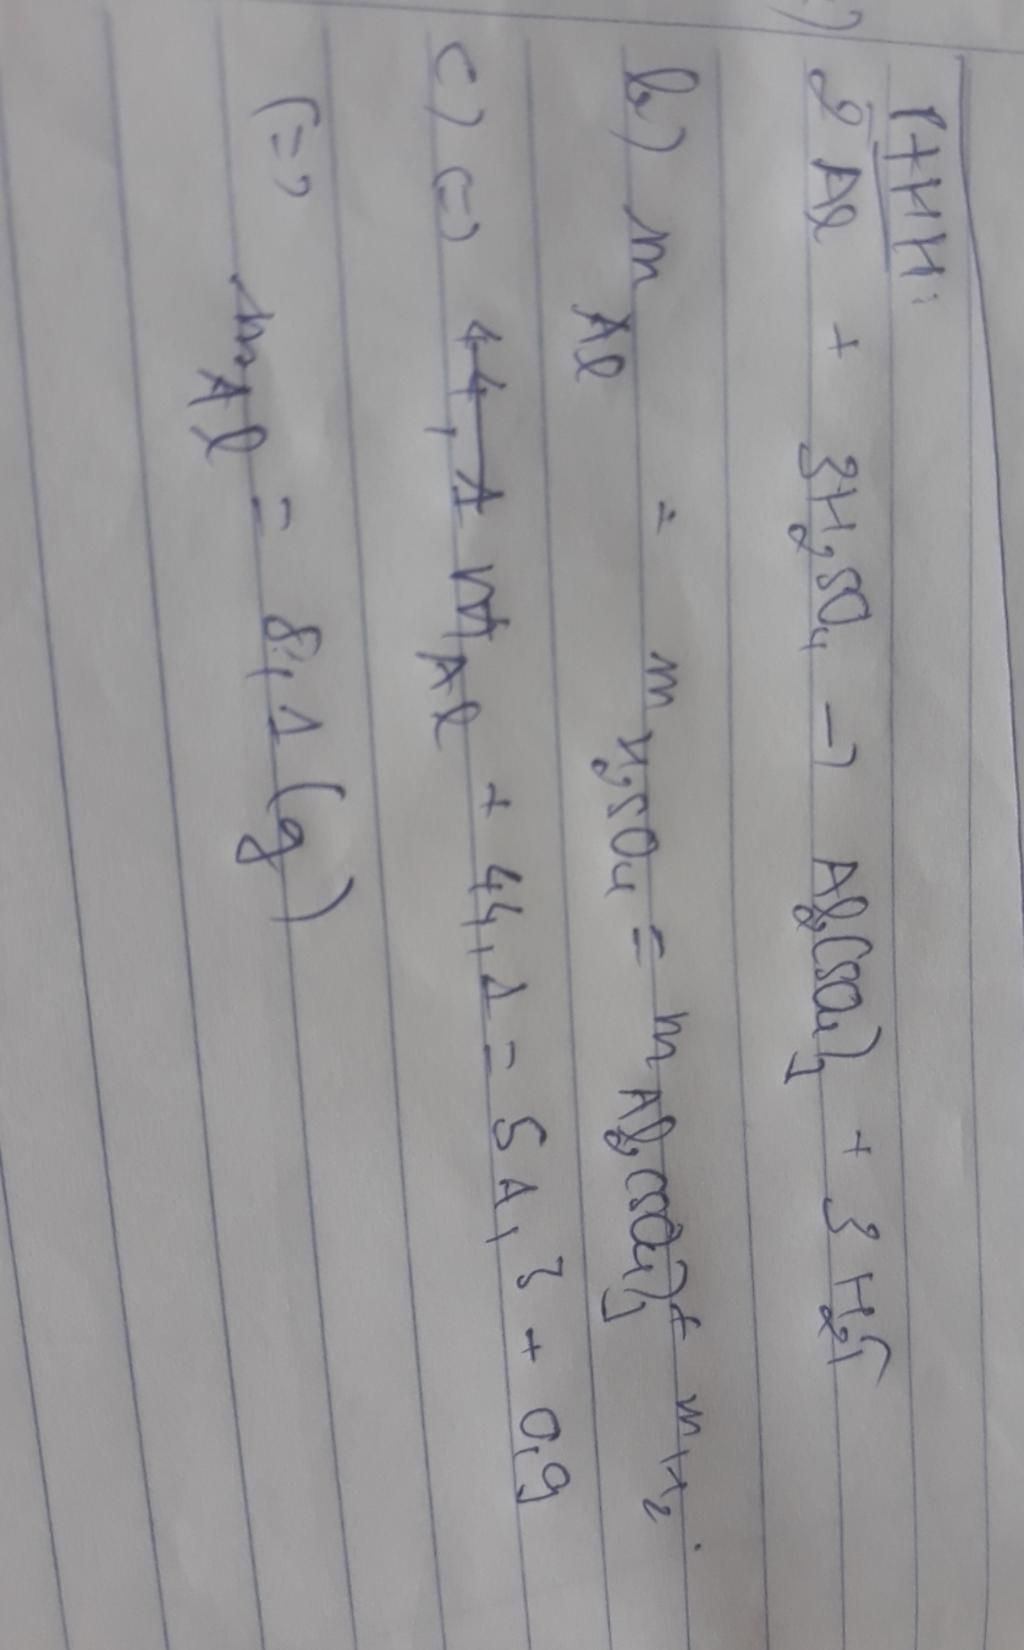 PTHH:
2Al + 3H₂SO₄ → Al₂(SO₄)₃ + 3H₂↑
b) m Al = m H₂SO₄ = m Al₂(SO₄)₃ + m H₂.
c) (=) 44,1 m Al + 44,1 = 51,3 + 0,9
(=> m Al = 8,1 (g)